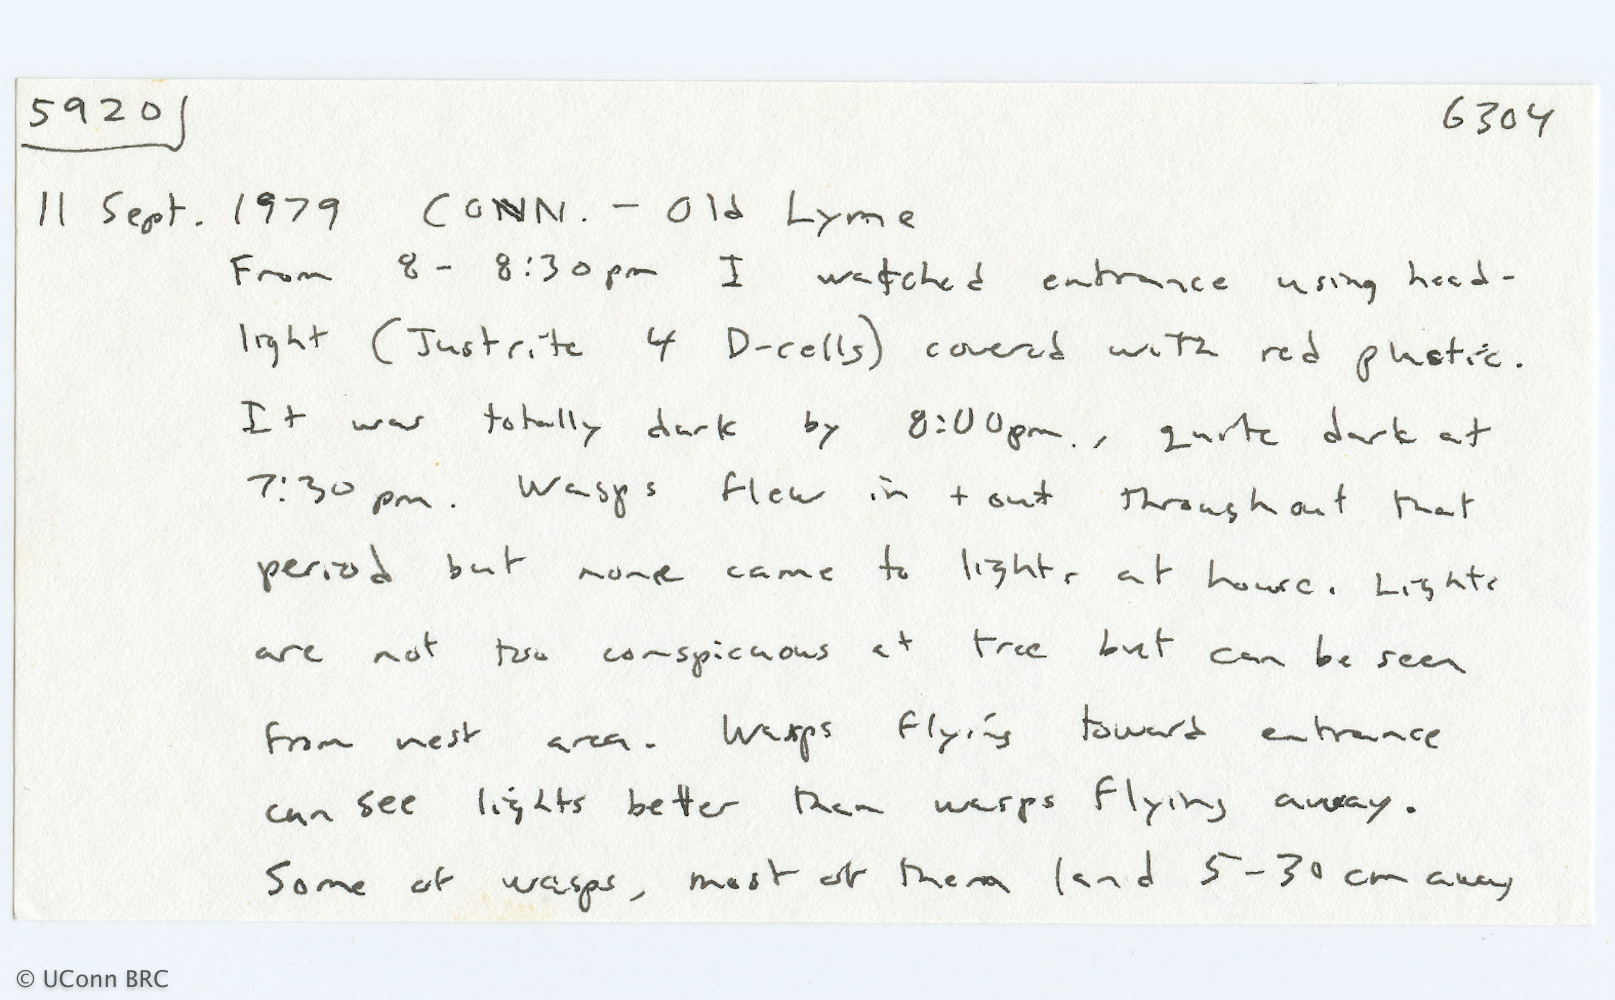 5920 6304
11 Sept. 1979 CONN. - Old Lyme
From 8 - 8:30pm I watched entrance using head-
light (Justrite 4 D-cells) covered with red plastic.
It was totally dark by 8:00pm., quite dark at
7:30 pm. Wasps flew in + out throughout that
period but none came to lights at house. Lights
are not too conspicuous at tree but can be seen
from nest area. Wasps flying toward entrance
can see lights better than wasps flying away.
Some of wasps, most of them land 5-30 cm away
© UConn BRC